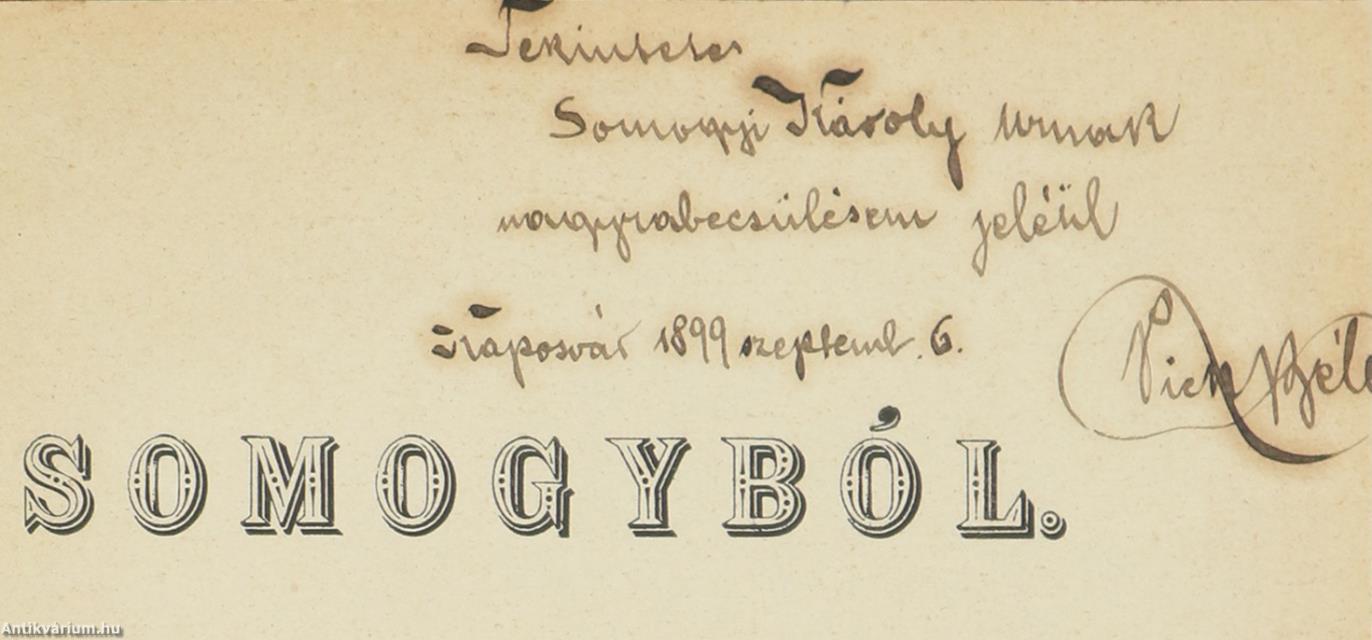 Tekintetes
Somogyi Károly urnak
nagyrabecsülésem jeléül
Kaposvár 1899 szeptemb. 6.
SOMOGYBÓL.
Antikvárium.hu